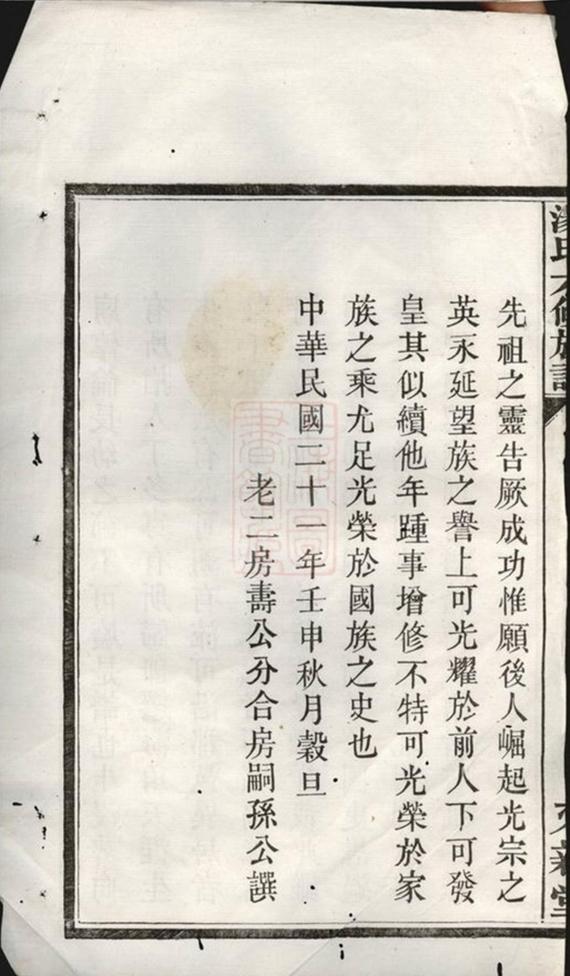 先祖之靈告厥成功惟願後人崛起光宗之
英永延望族之譽上可光耀於前人下可發
皇其似續他年踵事增修不特可光榮於家
族之乘尤足光榮於國族之史也
中華民國二十一年壬申秋月穀旦
老二房壽公分合房嗣孫公譔